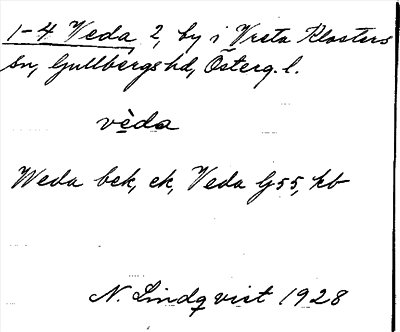 1-4 Veda 2, by i Vreta Klosters
sn, Gullbergs hd, Österg. l.
vèda
Weda bek, ek, Veda G55, kb
N. Lindqvist 1928